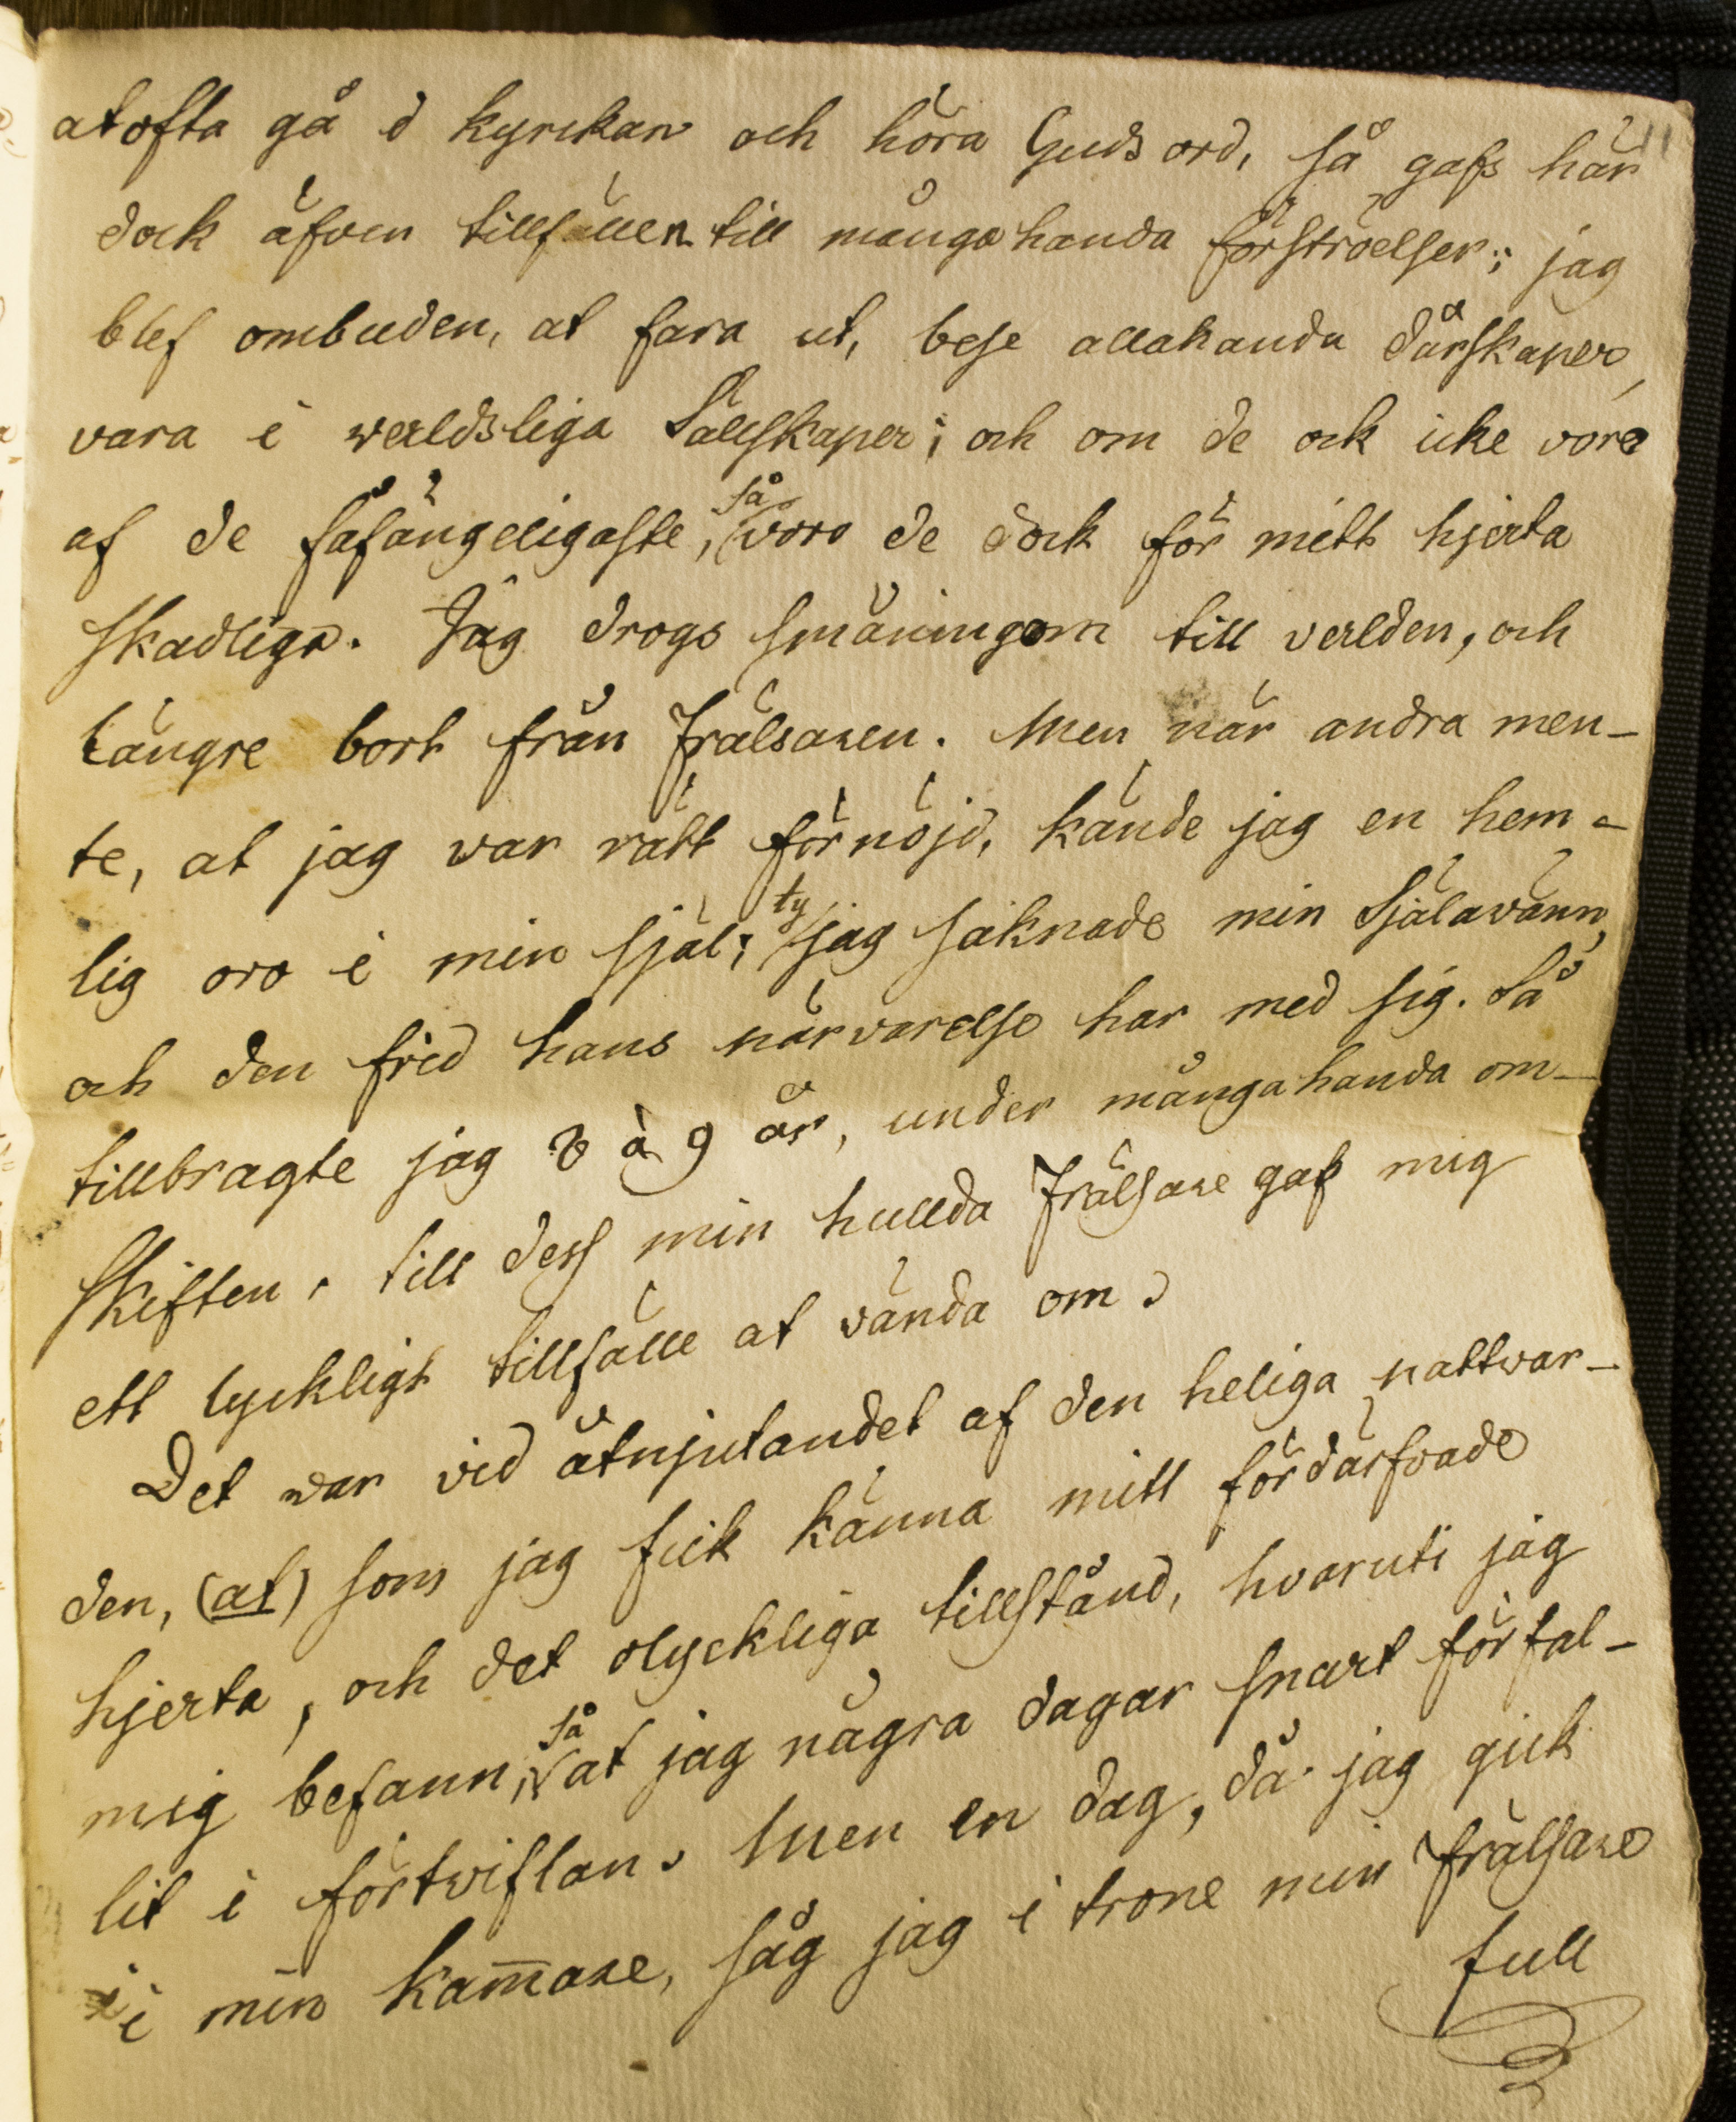 11
at ofta gå i kyrckan och höra Guds ord, så gafs här
dock äfven tillfällen till mångahanda förströelser; jag
blef ombuden, at fara ut, bese allahanda dårskaper,
vara i werldsliga Sällskaper; och om de ock icke vore
af de fåfängeligaste, så voro de dock för mitt hjerta
skadliga. Jag drogs småningom till verlden, och
längre bort från Frälsaren. Men når andra men-
te, at jag war rätt förnöjd, kände jag en hem-
lig oro i min själ; ty jag saknade min Själavänn,
och den frid hans närvarelse har med sig. Så
tillbragte jag 8 à 9 år, under mångahanda om-
skiften, till dess min hullda Frälsare gaf mig
ett lyckligt tillfälle at vända om.
Det war vid åtnjutandet af den heliga nattwar-
den, (at) som jag fick känna mitt fördärfvade
hjerta, och det olyckliga tillstånd, hvaruti jag
mig befann, så at jag några dagar snart förfal-
lit i förtwiflan. Men en dag, då jag gick
i min kam̅are, såg jag i trone min Frälsare
full